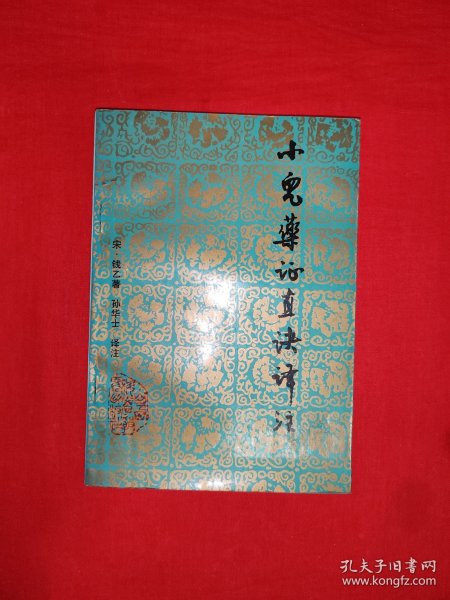 小儿药证直诀译注
宋·钱乙著 孙华士 译注
孔夫子旧书网
www.kongfz.com